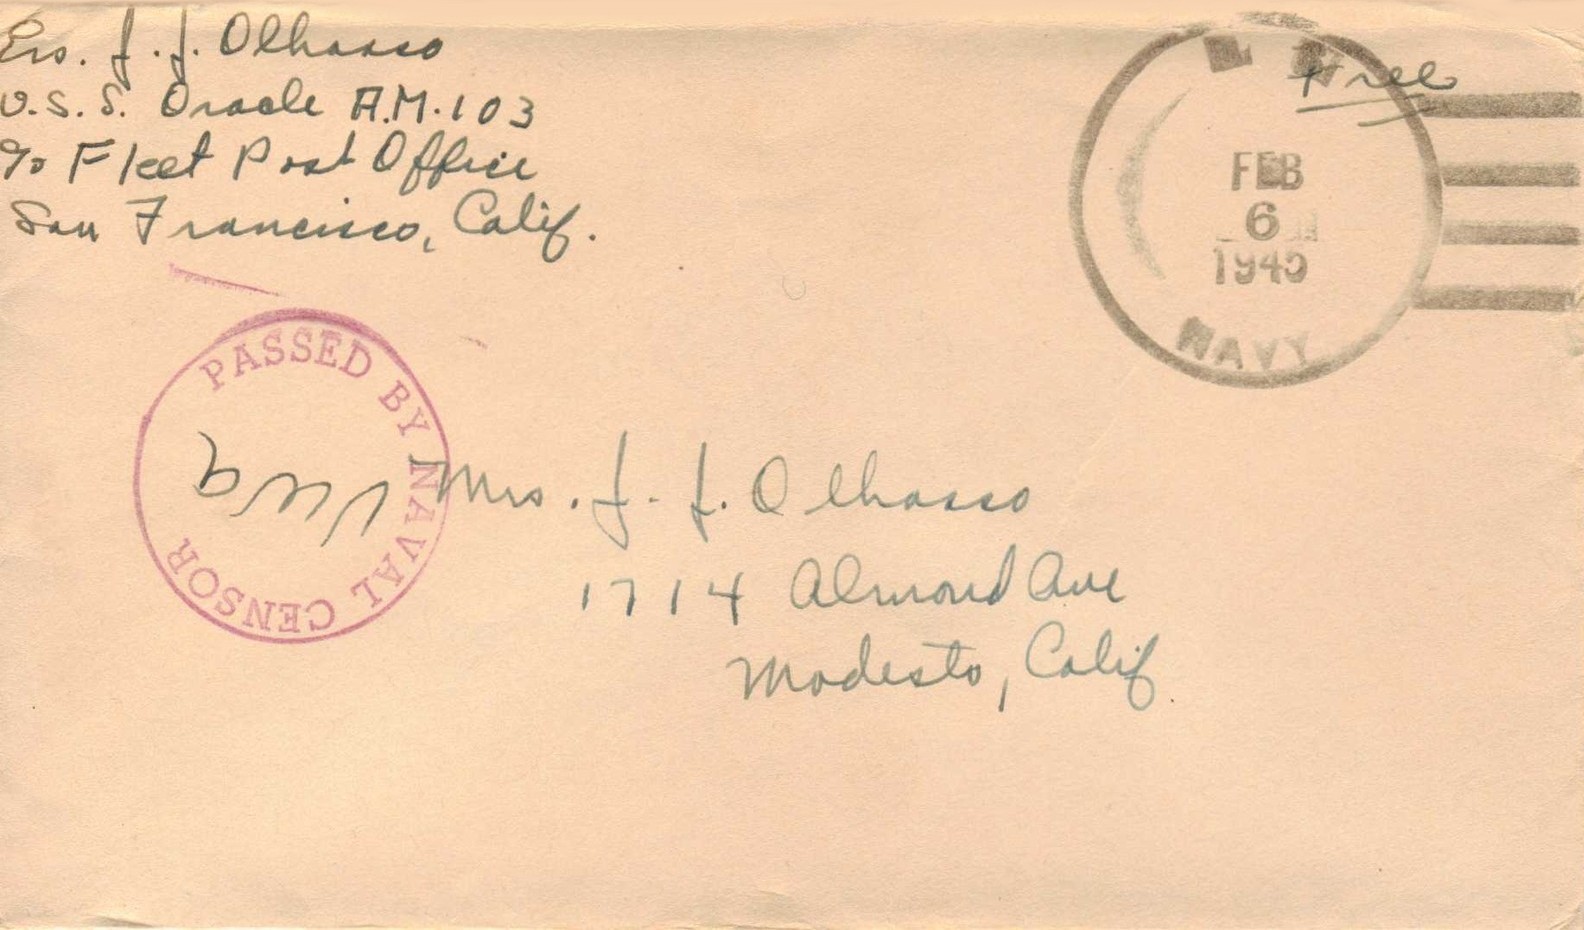 Ens. J. J. Olhasso
U.S.S. Oracle A.M. 103
℅ Fleet Post Office
San Francisco, Calif.
Free
FEB
6
1945
NAVY
PASSED BY NAVAL CENSOR
Mrs. J. J. Olhasso
1714 Almond Ave
Modesto, Calif.